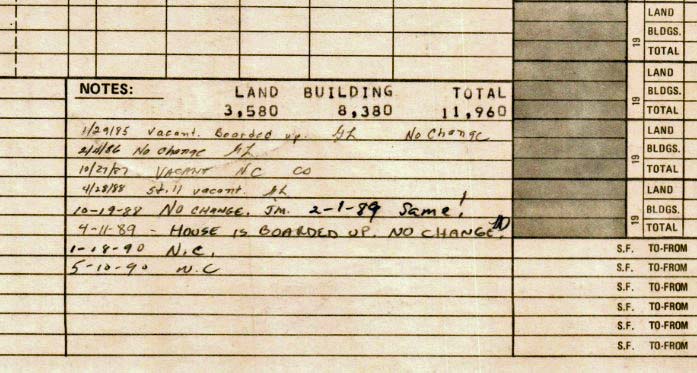 NOTES: LAND BUILDING TOTAL
3,580 8,380 11,960
1/29/85 Vacant. Boarded up. No Change
No Change
10/27/87 VACANT NC CO
4/28/88 Still vacant.
10-19-88 NO CHANGE. JM. 2-1-89 Same!
4-11-89 - HOUSE IS BOARDED UP. NO CHANGE.
1-18-90 N.C.
5-10-90 N.C
LAND
BLDGS.
19 TOTAL
LAND
BLDGS.
19 TOTAL
LAND
BLDGS.
19 TOTAL
LAND
BLDGS.
19 TOTAL
S.F. TO-FROM
S.F. TO-FROM
S.F. TO-FROM
S.F. TO-FROM
S.F. TO-FROM
S.F. TO-FROM